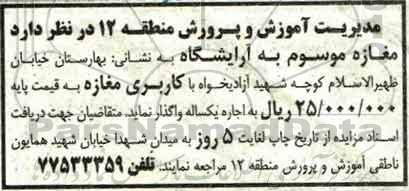 مدیریت آموزش و پرورش منطقه ۱۲ در نظر دارد
مغازه موسوم به آرایشگاه به نشانی: بهارستان خیابان
ظهیرالاسلام کوچه شهید آزادیخواه با کاربری مغازه به قیمت پایه
۲۵/۰۰۰/۰۰۰ ریال به اجاره یکساله واگذار نماید. متقاضیان جهت دریافت
اسناد مزایده از تاریخ چاپ لغایت ۵ روز به میدان شهدا خیابان شهید همایون
ناطقی آموزش و پرورش منطقه ۱۲ مراجعه نمایند. تلفن ۷۷۵۳۳۳۵۹